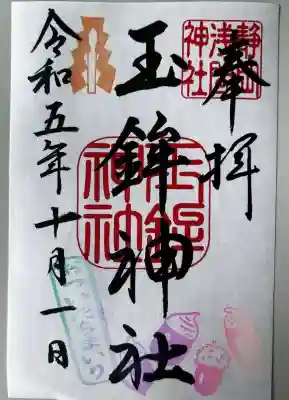 奉拝
静岡
津島
神社
玉鉾神社
玉鉾
神社
令和五年十月一日